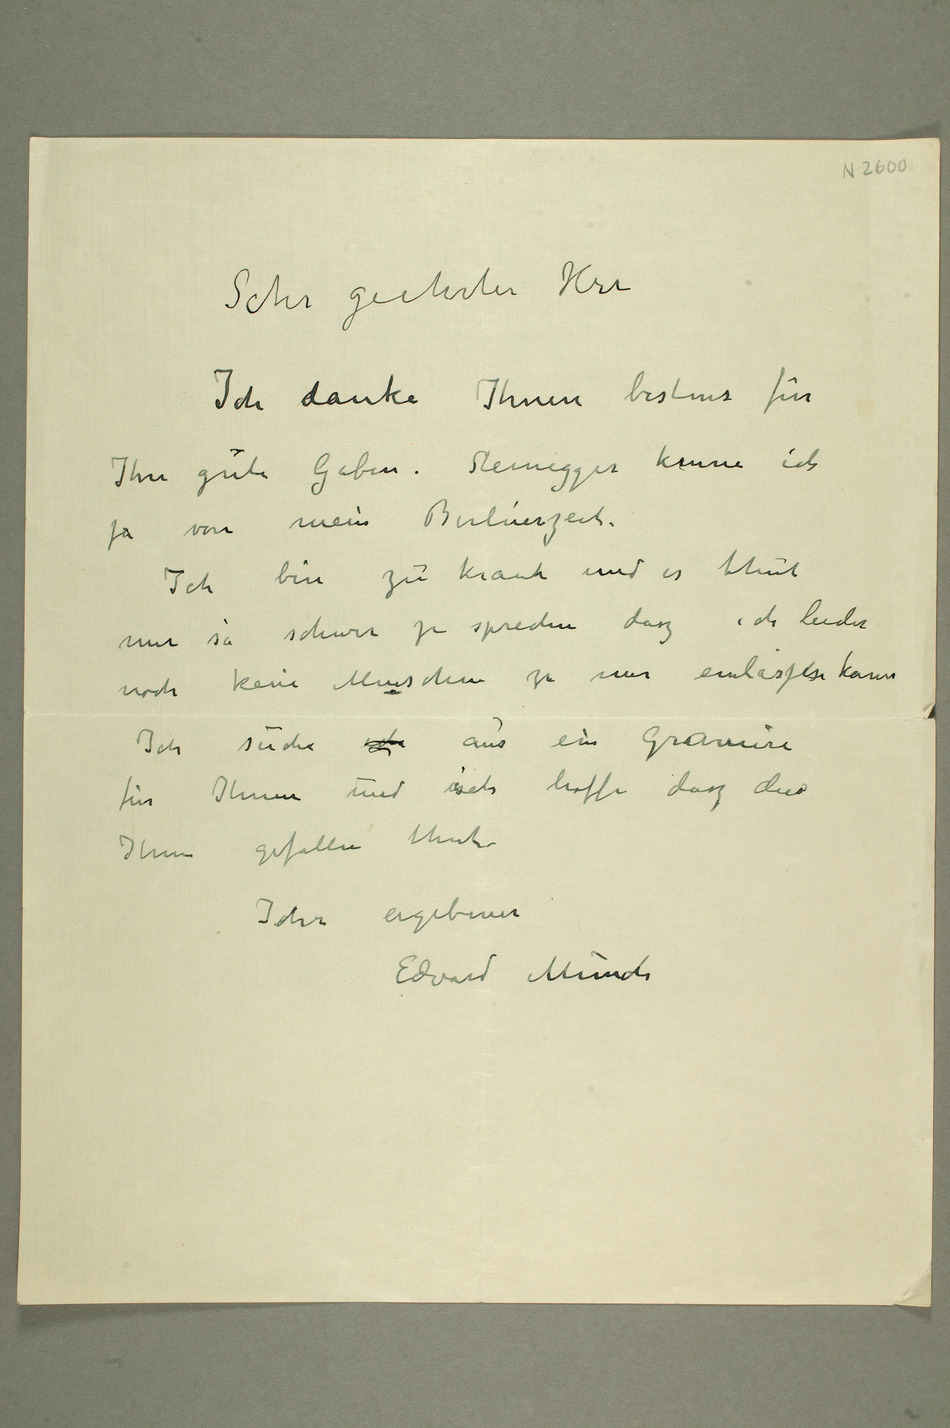 N 2600
Sehr geehrter Herr
Ich danke Ihnen bestens für
Ihre gute Gaben. kenne ich
ja von mein Berlinerzeit.
Ich bin zu krank und es thut
mir so schwer zu sprechen dasz ich leider
noch kein Menschen zu mir kann
Ich suche aus ein Gravure
für Ihnen und ich hoffe dasz dies
Ihnen gefallen thut
Ihr ergebener
Edvard Munch